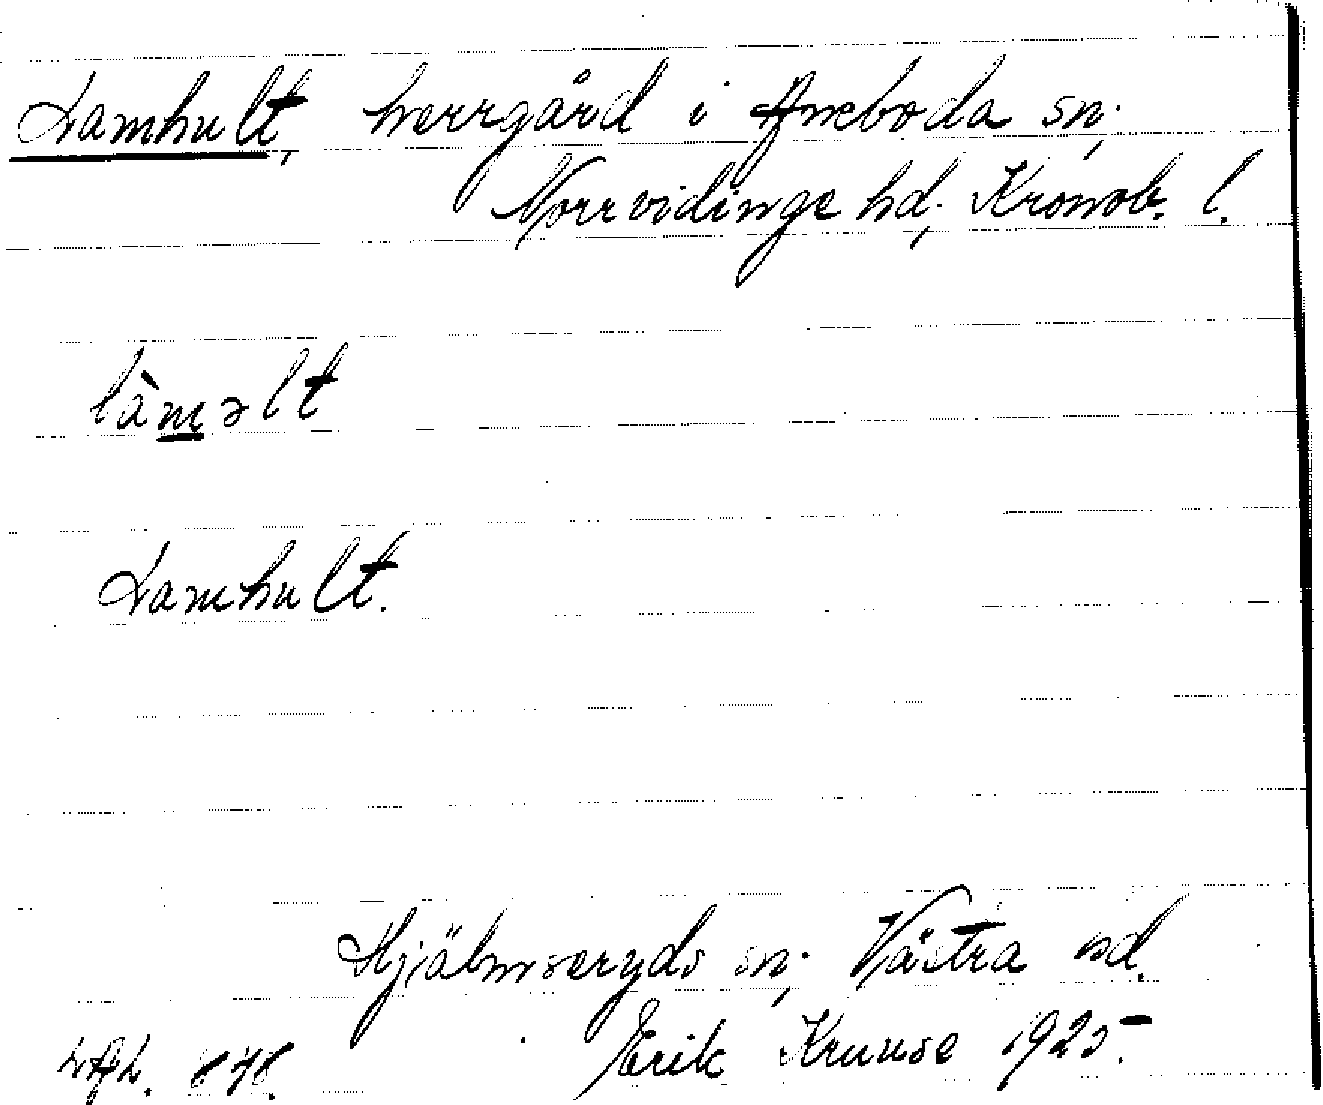 Lamhult, herrgård i Aneboda sn;
Norrvidinge hd, Kronob. l.
làməlt
Lamhult.
Hjälmseryds sn; Västra hd.
Erik Kruuse 1925.